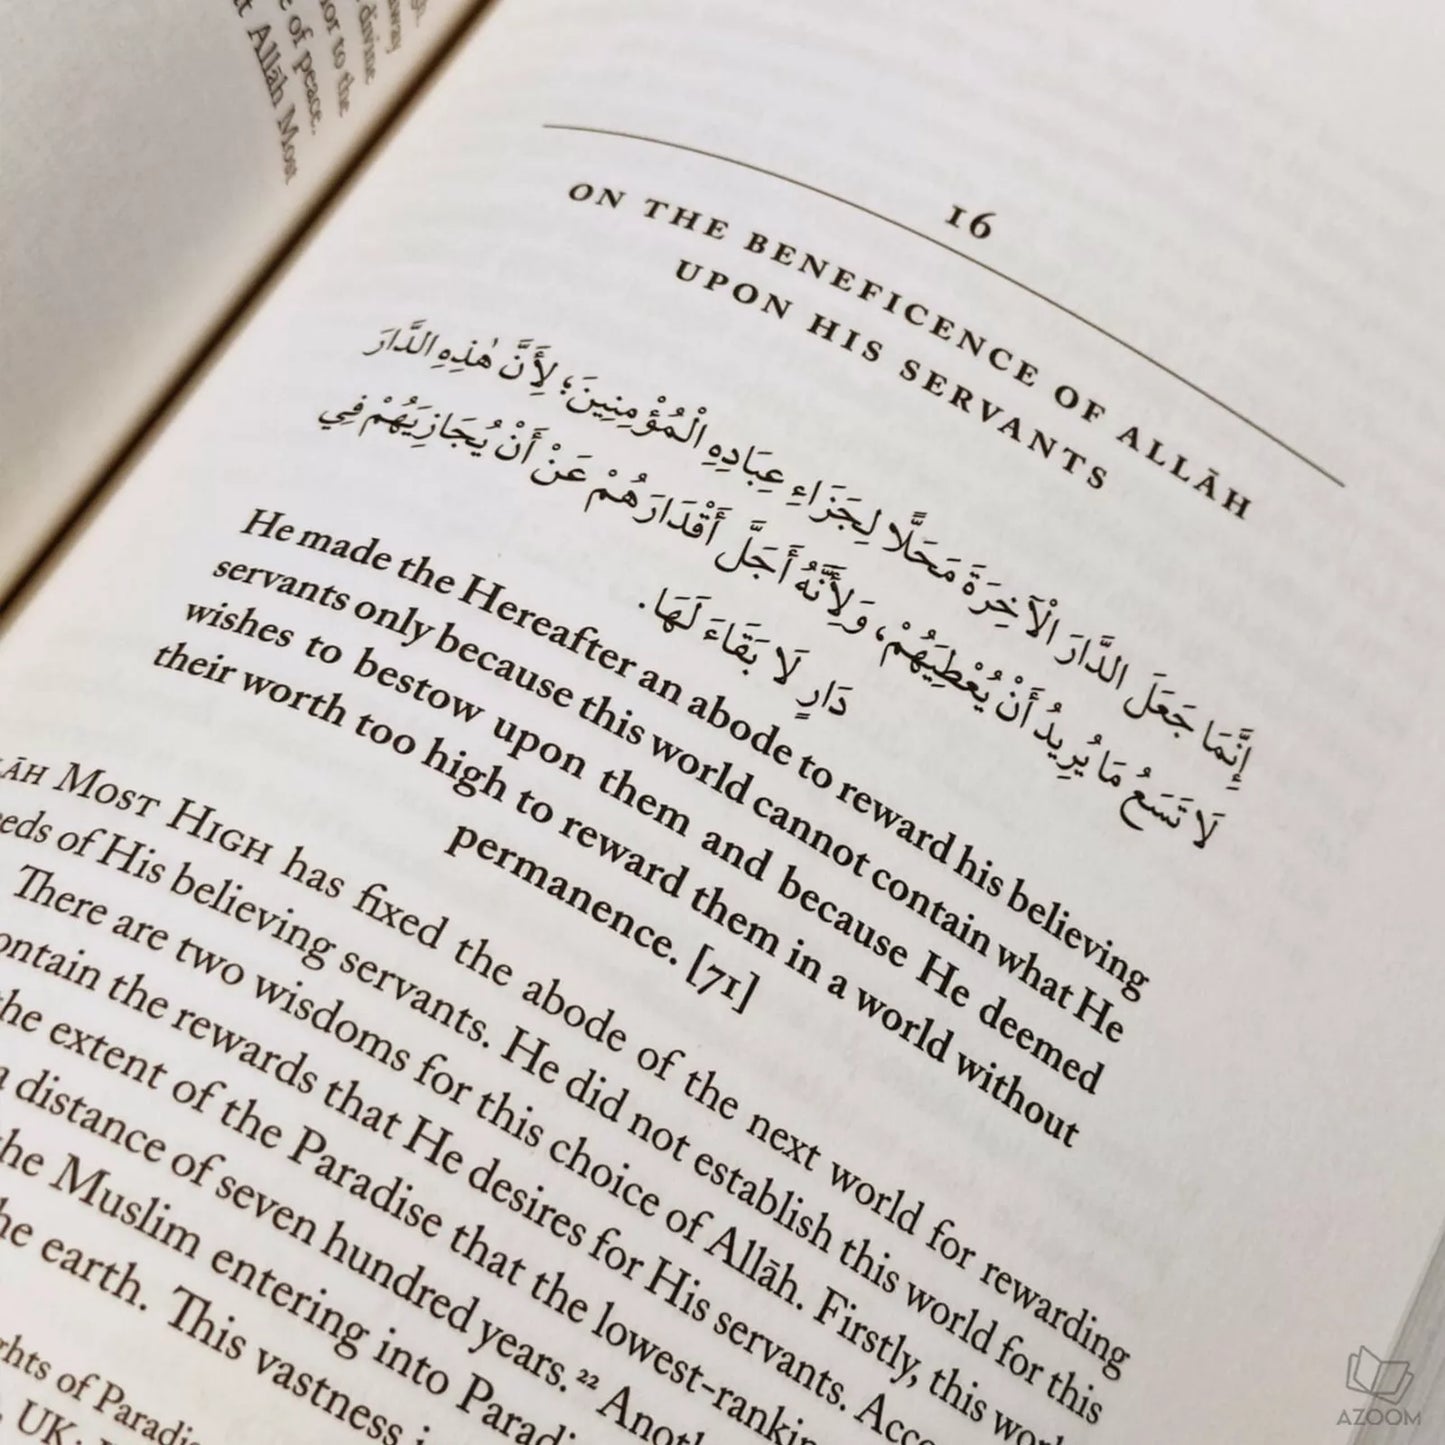 away
divine
to the
of peace,
Allāh Most
16
ON THE BENEFICENCE OF ALLĀH
UPON HIS SERVANTS
إِنَّمَا جَعَلَ الدَّارَ الْآخِرَةَ مَحَلًّا لِجَزَاءِ عِبَادِهِ الْمُؤْمِنِينَ؛ لِأَنَّ هٰذِهِ الدَّارَ
لَا تَسَعُ مَا يُرِيدُ أَنْ يُعْطِيَهُمْ، وَلِأَنَّهُ أَجَلَّ أَقْدَارَهُمْ عَنْ أَنْ يُجَازِيَهُمْ فِي
دَارٍ لَا بَقَاءَ لَهَا.
He made the Hereafter an abode to reward his believing
servants only because this world cannot contain what He
wishes to bestow upon them and because He deemed
their worth too high to reward them in a world without
permanence. [71]
MOST HIGH has fixed the abode of the next world for rewarding
of His believing servants. He did not establish this world for this
There are two wisdoms for this choice of Allāh. Firstly, this
the rewards that He desires for His servants.
the extent of the Paradise that the lowest-
distance of seven hundred years.²²
the Muslim entering into
the earth. This vastness
of
UK:
AZOOM